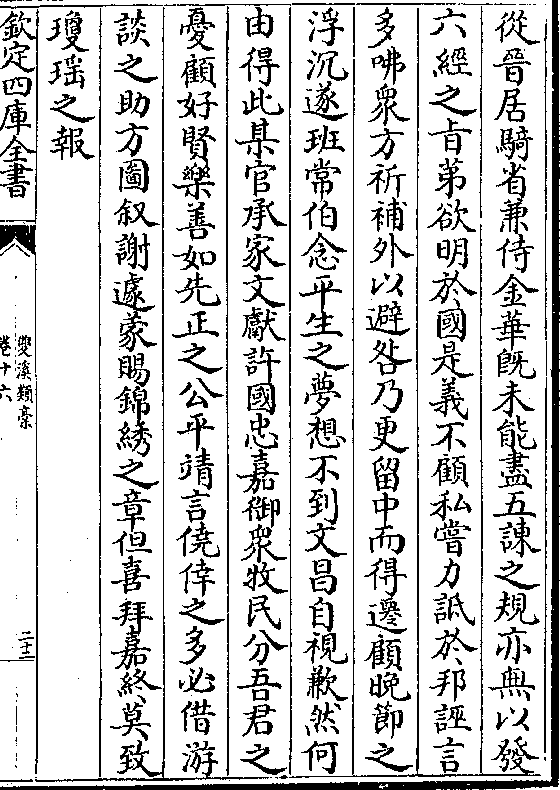 從晉居騎省兼侍金華旣未能盡五諫之規亦無以發
六經之旨第欲明於國是義不顧私嘗力詆於邦誣言
多咈衆方祈補外以避咎乃更留中而得遷顧晚節之
浮沉遂班常伯念平生之夢想不到文昌自視歉然何
由得此某官承家文獻許國忠嘉御衆牧民分吾君之
憂顧好賢樂善如先正之公平靖言僥倖之多必借游
談之助方圖叙謝遽蒙賜錦綉之章但喜拜嘉終莫致
瓊瑶之報
欽定四庫全書
雙溪類稾
卷十六
二十二